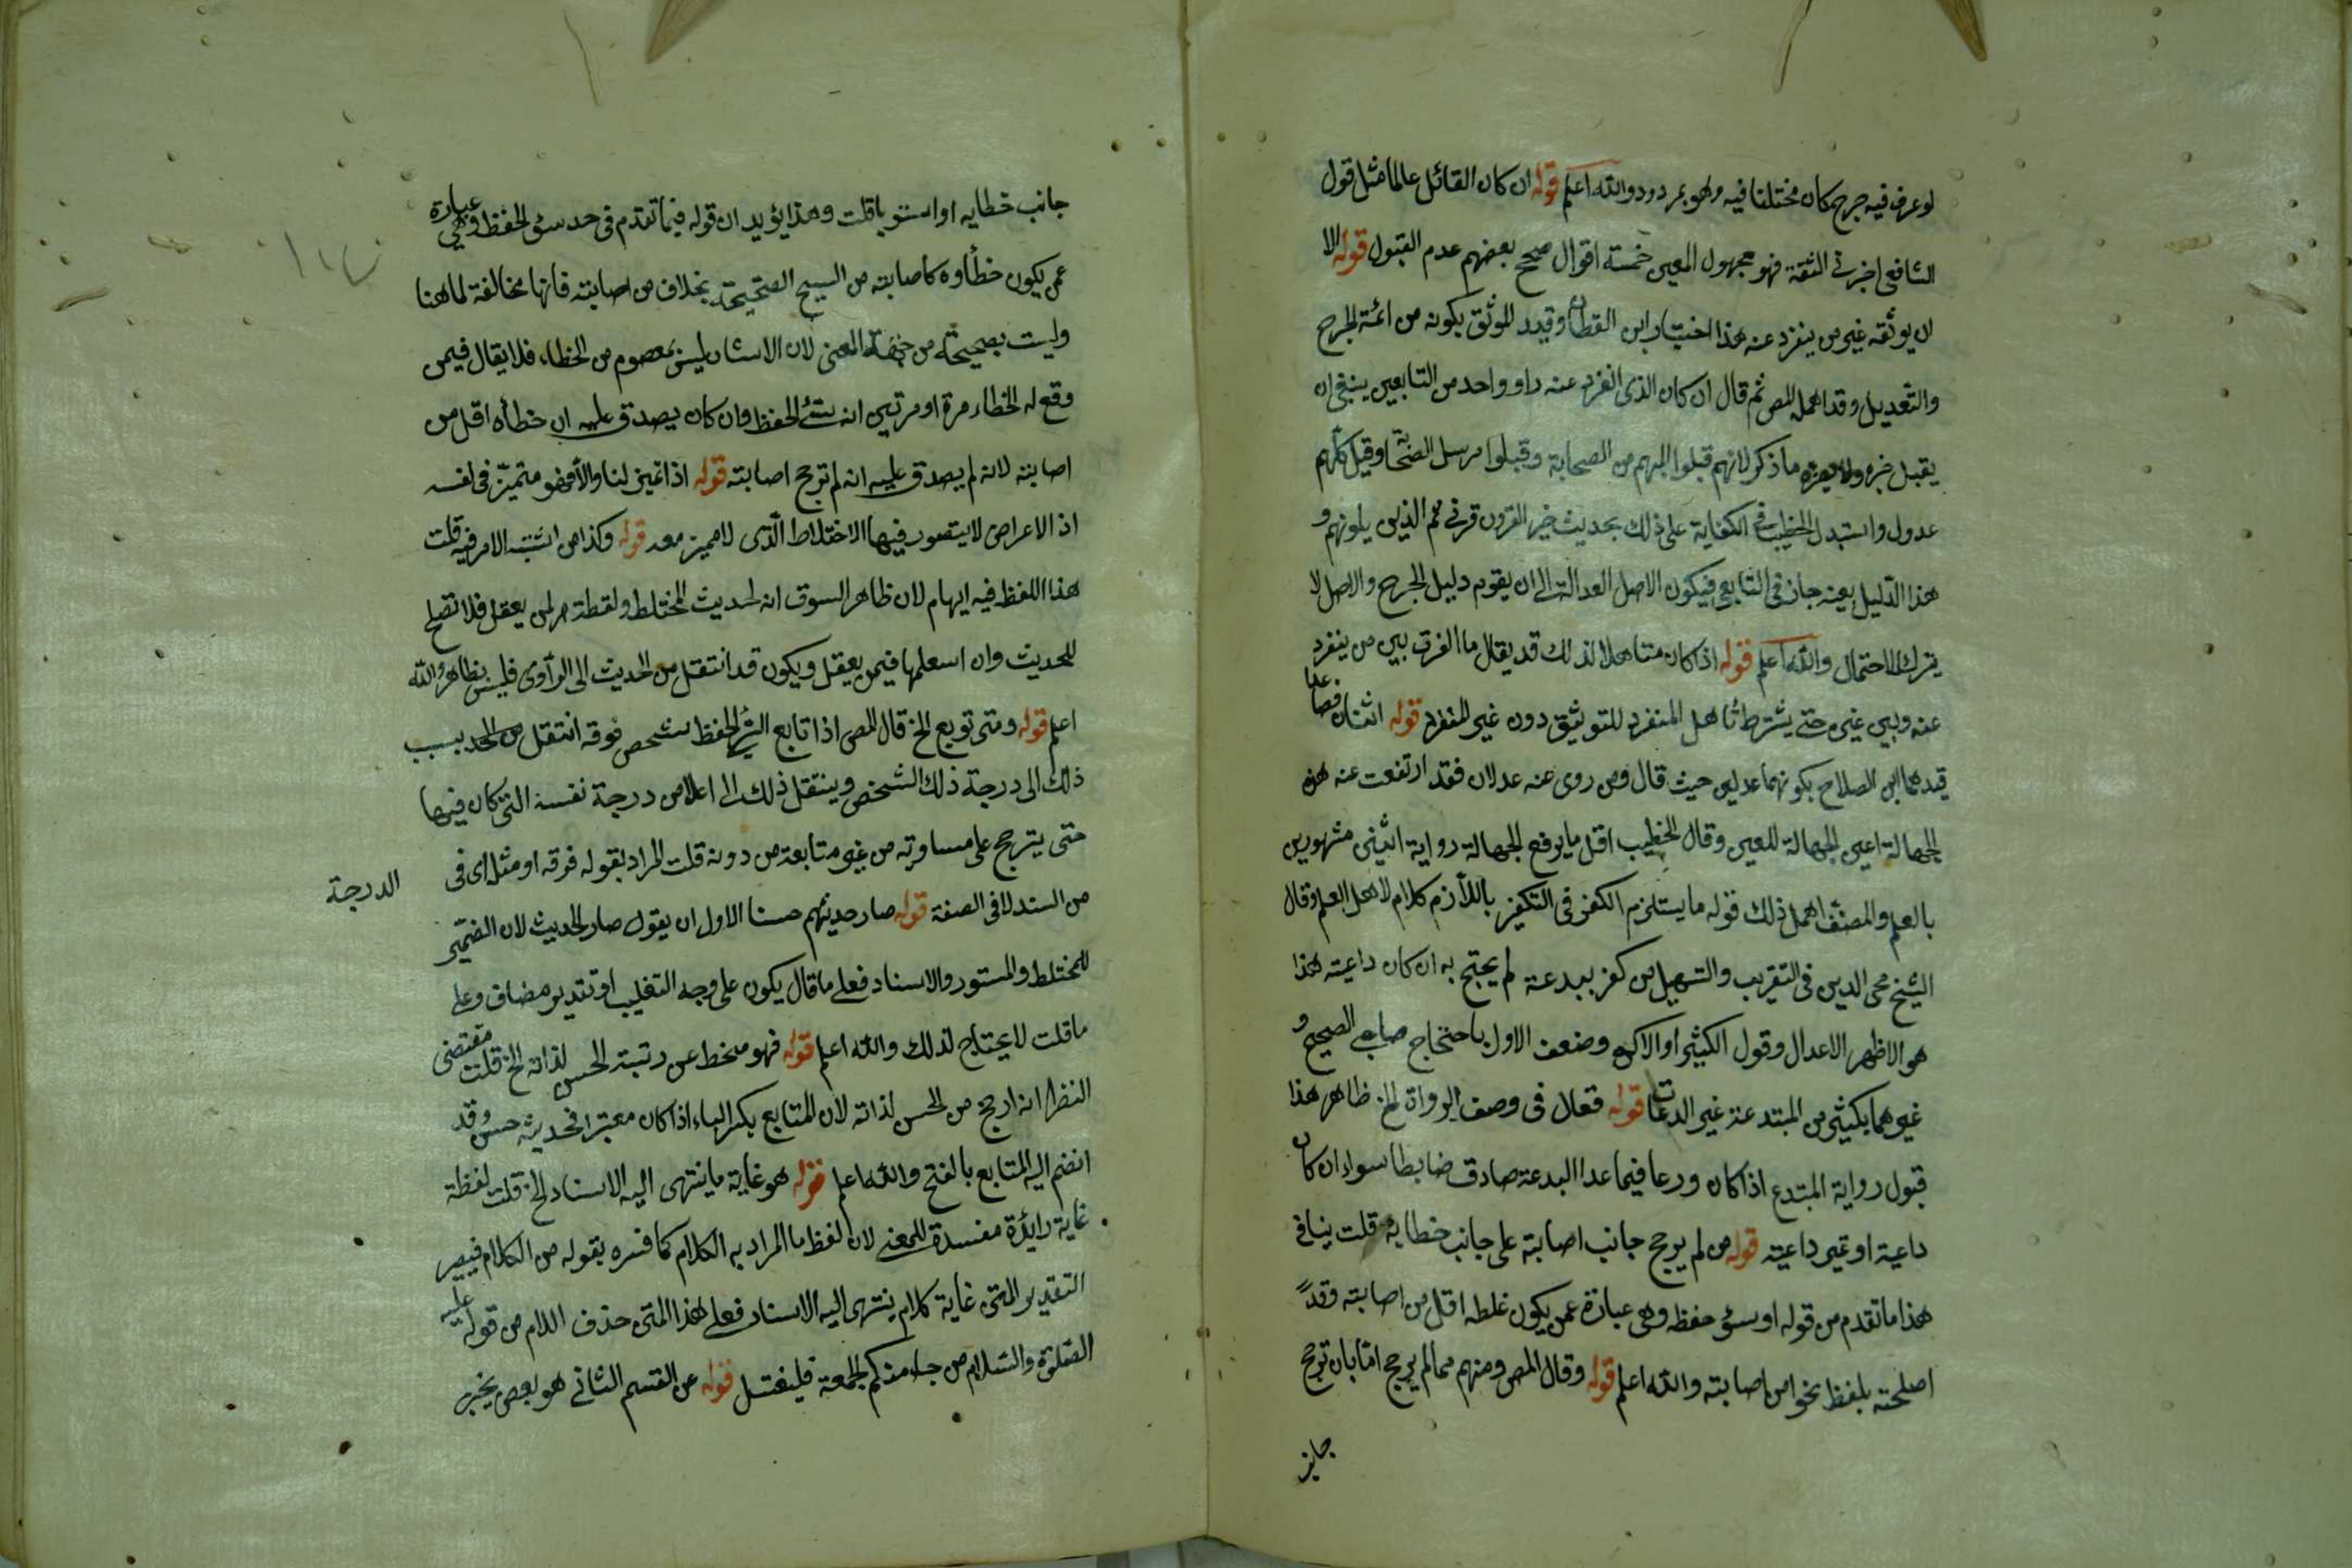 لو عرف فيه جرح كان مختلفا فيه وهو مردود والله اعلم قوله ان كان القائل عالما مثل قول
الشافعي اخبرني الثقة فهو مجهول العين خمسة اقوال صحح بعضهم عدم القبول قوله الا
ان يوثقه غير من ينفرد عنه هذا اختيار ابن القطان وقيد الموثق بكونه من ائمة الجرح
والتعديل وقد اهمله المص ثم قال ان كان الذى انفرد عنه راو واحد من التابعين ينبغي ان
يقبل خبره ولا يضره ما ذكر لانهم قبلوا المبهم من الصحابة وقبلوا مرسل الصحابة وقيل كلهم
عدول واستدل الخطيب في الكفاية على ذلك بحديث خير القرون قرني ثم الذين يلونهم و
هذا الدليل بعينه جار في التابعي فيكون الاصل العدالة الى ان يقوم دليل الجرح والاصل لا
يترك للاحتمال والله اعلم قوله اذا كان متاهلا لذلك قد يقال ما الفرق بين من ينفرد
عنه وبين غيره حتى يشترط تاهل المنفرد للتوثيق دون غير المنفرد قوله اثنان فصاعدا
قيدهما ابن الصلاح بكونهما عدلين حيث قال ومن روى عنه عدلان فقد ارتفعت عنه هذه
الجهالة اعين الجهالة للعين وقال الخطيب اقل ما يرفع الجهالة رواية اثنين مشهورين
بالعلم والمصنف اهمل ذلك قوله ما يستلزم الكفر في التكفير باللازم كلام لاهل العلم وقال
الشيخ محي الدين في التقريب والتسهيل من كفر ببدعة لم يحتج به ان كان داعيته هذا
هو الاظهر الاعدال وقول الكثير او الاكثر وضعف الاول باحتجاج صاحبي الصحيح و
غيرهما بكثير من المبتدعة غير الدعات قوله فعال في وصف الرواة الخ ظاهر هذا
قبول رواية المبتدع اذا كان ورعا فيما عدا البدعة صادق ضابطا سوا ان كان
داعية او غير داعية قوله من لم يرجح جانب اصابته على جانب خطايه قلت ينافي
هذا ما تقدم من قوله او سئ حفظه وهي عبارة عمن يكون غلطه اقل من اصابته وقد
اصلحته بلفظ نحوا من اصابته والله اعلم قوله وقال المص ومنهم مما لم يرجح اما بان ترجح
جانب
جانب خطايه او استويا قلت وهذا يؤيد ان قوله فيما تقدم في حد سئ الحفظ وهي عبارة
عمن يكون خطأوه كاصابته من النسخ الصحيحة بخلاف من اصابته فانها مخالفة لما هنا
وليست بصحيحة من جهة المعنى لان الانسان ليس بمعصوم من الخطاء فلا يقال فيمن
وقع له الخطاء مرة او مرتين انه سئ الحفظ وان كان يصدق عليه ان خطأه اقل من
اصابته لانه لم يصدق عليه انه لم ترجح اصابته قوله اذا تميز لنا والا فهو متميز في نفسه
اذ الاعراض لا يتصور فيها الاختلاط الذى لا مميز معه قوله وكذا من اشتبه الامر فيه قلت
هذا اللفظ فيه ايهام لان ظاهر السوق انه لحديث المختلط ولفظة من لمن يعقل فلا تصلح
للحديث وان اسعلمها فيمن يعقل ويكون قد انتقل من الحديث الى الراوى فليس بظاهر والله
اعلم قوله ومتى توبع الخ قال المص اذا تابع السئ الحفظ شخص فوقه انتقل من الحد بسبب
ذلك الى درجة ذلك الشخص وينتقل ذلك الى اعلا من درجة نفسه التي كان فيها
حتى يترجح على مساويه من غير متابعة من دونه قلت المراد بقوله فوقه او مثله اى في الدرجة
من السند لا في الصفة قوله صار حديثهم حسنا الاول ان يقول صار الحديث لان الضمير
للمختلط والمستور والاسناد فعلى ما قال يكون على وجه التغليب او تقدير مضاف وعلى
ما قلت لا يحتاج لذلك والله اعلم قوله فهو منحط عن رتبة الحسن لذاته الخ قلت مقتضى
النظر انه ارجح من الحسن لذاته لان المتابع بكسر الباء اذا كان معتبرا فحديثه حسن وقد
انضم اليه المتابع بالفتح والله اعلم قوله هو غاية ما ينتهى اليه الاسناد الخ قلت لفظة
غاية زائدة مفسدة للمعنى لان لفظ ما المراد به الكلام كما فسره بقوله من الكلام فيصير
التقدير المتن غاية كلام ينتهى اليه الاسناد فعلى هذا المتن حذف اللام من قوله عليه
الصلوة والسلام من جاء منكم الجمعة فليغتسل قوله عن القسم الثاني هو بعض بخبر